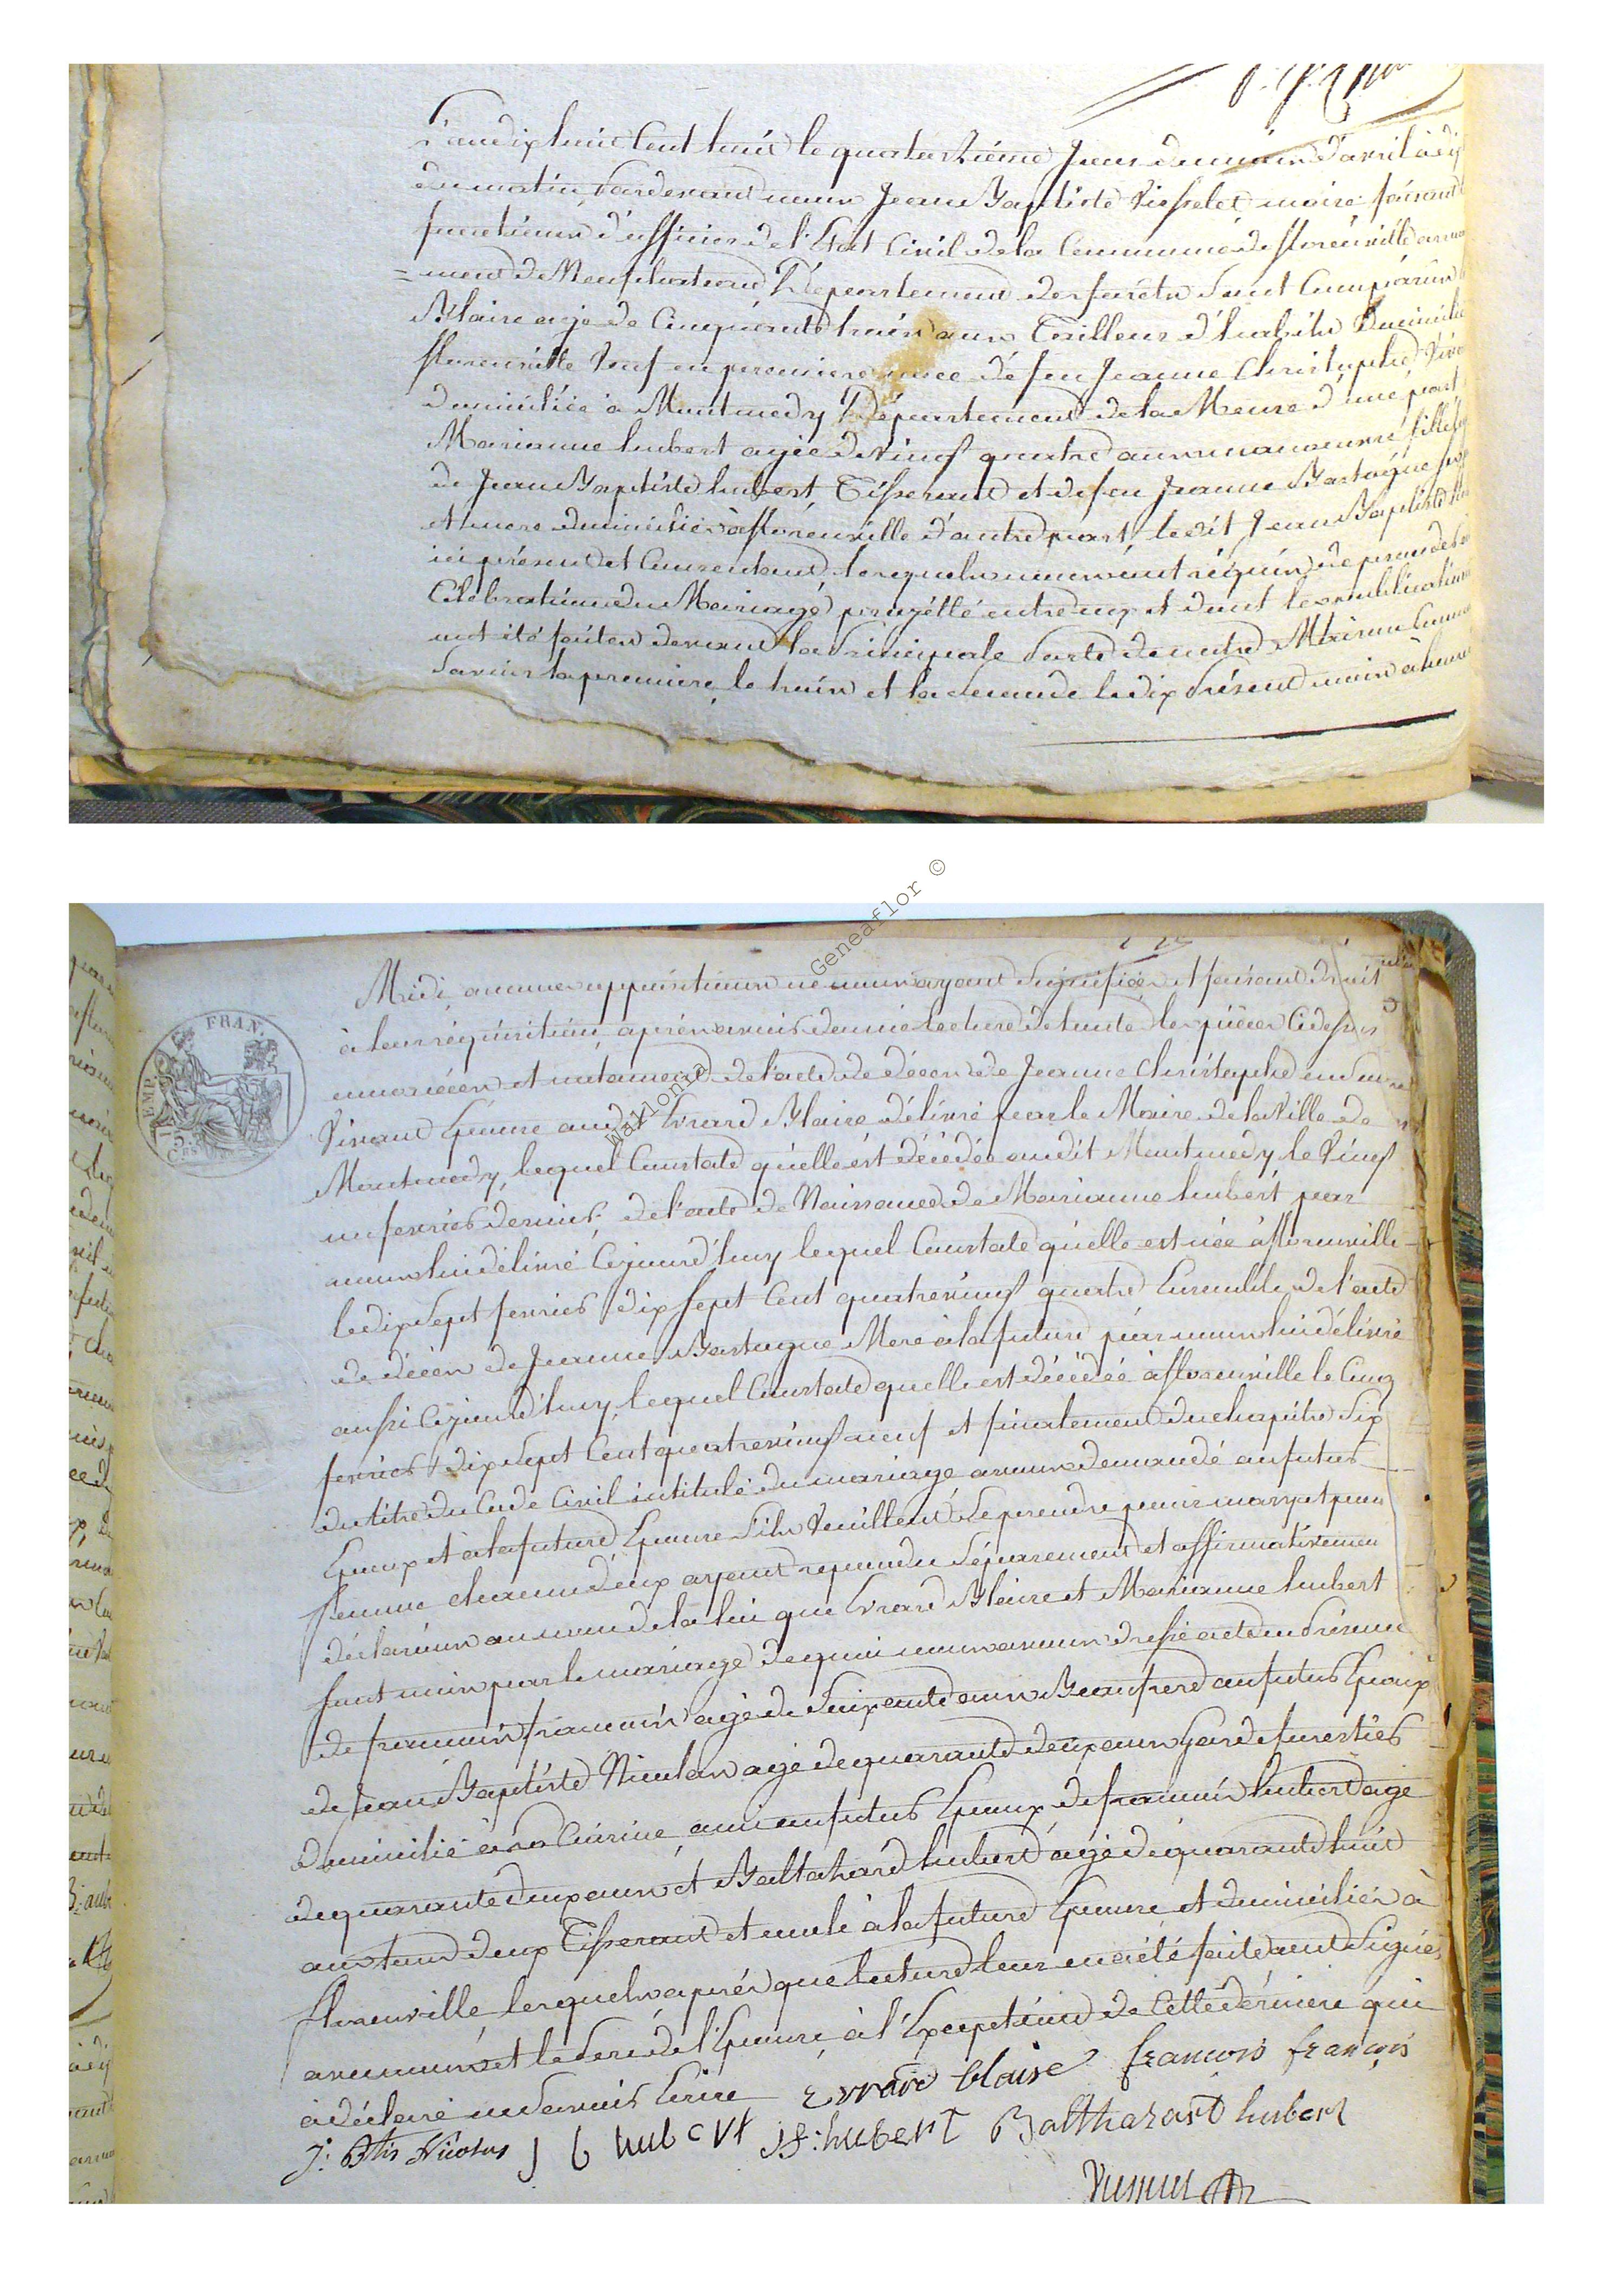 L'an dix huit Cent huit le quatorzième Jour du mois d'avril à dix
du matin, Pardevant nous Jean Baptiste Visselet maire faisant
fonctions d'officier de l'Etat Civil de la Commune de florenville arron
=ment de Neufchateau Département des forêts Sont Comparus
Blaise agé de Cinquante huit ans Tailleur d'habits Domicilié
florenville Veuf en premiere noce de feu Jeanne Christophe, Viva
domiciliée à Montmedy Département de la Meuse d'une part
Marianne hubert agée de Vingt quatre ans manoeuvre fille
de Jean Baptiste hubert Tisserant et de feu Jeanne Bastogne
et mere domiciliés à florenville d'autre part, le dit Jean Baptiste
ici présent et Consentant, lesquels nous ont réquis de proceder
Célébration du Mariage projetté entre eux et dont les publications
ont été faites devant la Principale Porte de notre Maison Commu
Savoir la premiere le trois et la seconde le dix Présent mois à heure
Midi, aucune oppositions ne nous ayant Signifiée et faisant droit
à leur réquisition, après avoir donné lecture de toute les pièces Cidessus
énoncées et notament de l'acte de décès de Jeanne Christophe en Son
Vivant Epouse audit Evrard Blaise délivré par le Maire de la Ville de
Montmedy, lequel Constate qu'elle est décédée audit Montmedy le Vingt
un fevrier dernier, de l'acte de Naissance de Marianne hubert par
nous lui délivré Cejourd'huy lequel Constate qu'elle est née à florenville
le dix Sept fevrier dix Sept Cent quatrevingt quatre Ensemble de l'acte
de décès de Jeanne Bastogne Mere à la future par nous lui délivré
aussi Cejourd'huy, lequel Constate quelle est décédée à florenville le Cinq
fevrier dix Sept Cent quatrevingt neuf et finalement du chapitre Six
du titre du Code Civil intitulé du mariage avons demandé au futur
Epoux et à la future Epouse S'ils Veuillent Se prendre pour mary et pour
femme chacun d'eux ayant repondu Séparement et affirmativement
déclarons au nom de la loi que Evrard Blaise et Marianne hubert
Sont unis par le mariage de quoi nous avons dressé acte en Présence
de françois françois agé de Soixante ans Beaufrere au futur Epoux
de Jean Baptiste Nicolas agé de quarante deux ans Garde forestier
domicilié à La Cuisine, ami au futur Epoux, de françois hubert agé
de quarante deux ans et Baltazard hubert agé de quarante huit
ans tous deux Tisserant et oncle à la future Epouse et domiciliés à
florenville lesquels après que lecture leur en a été faite ont Signés
avec nous et le Pere de l'Epouse, à l'Exception de Cette dérniere qui
à déclaré ne Savoir Ecrire Evrard blaise françois françois
J: Btis Nicolas J b hubert J f: hubert Balthazart hubert
FRAN.
EMP.
Geneaflor ©
Wallonia